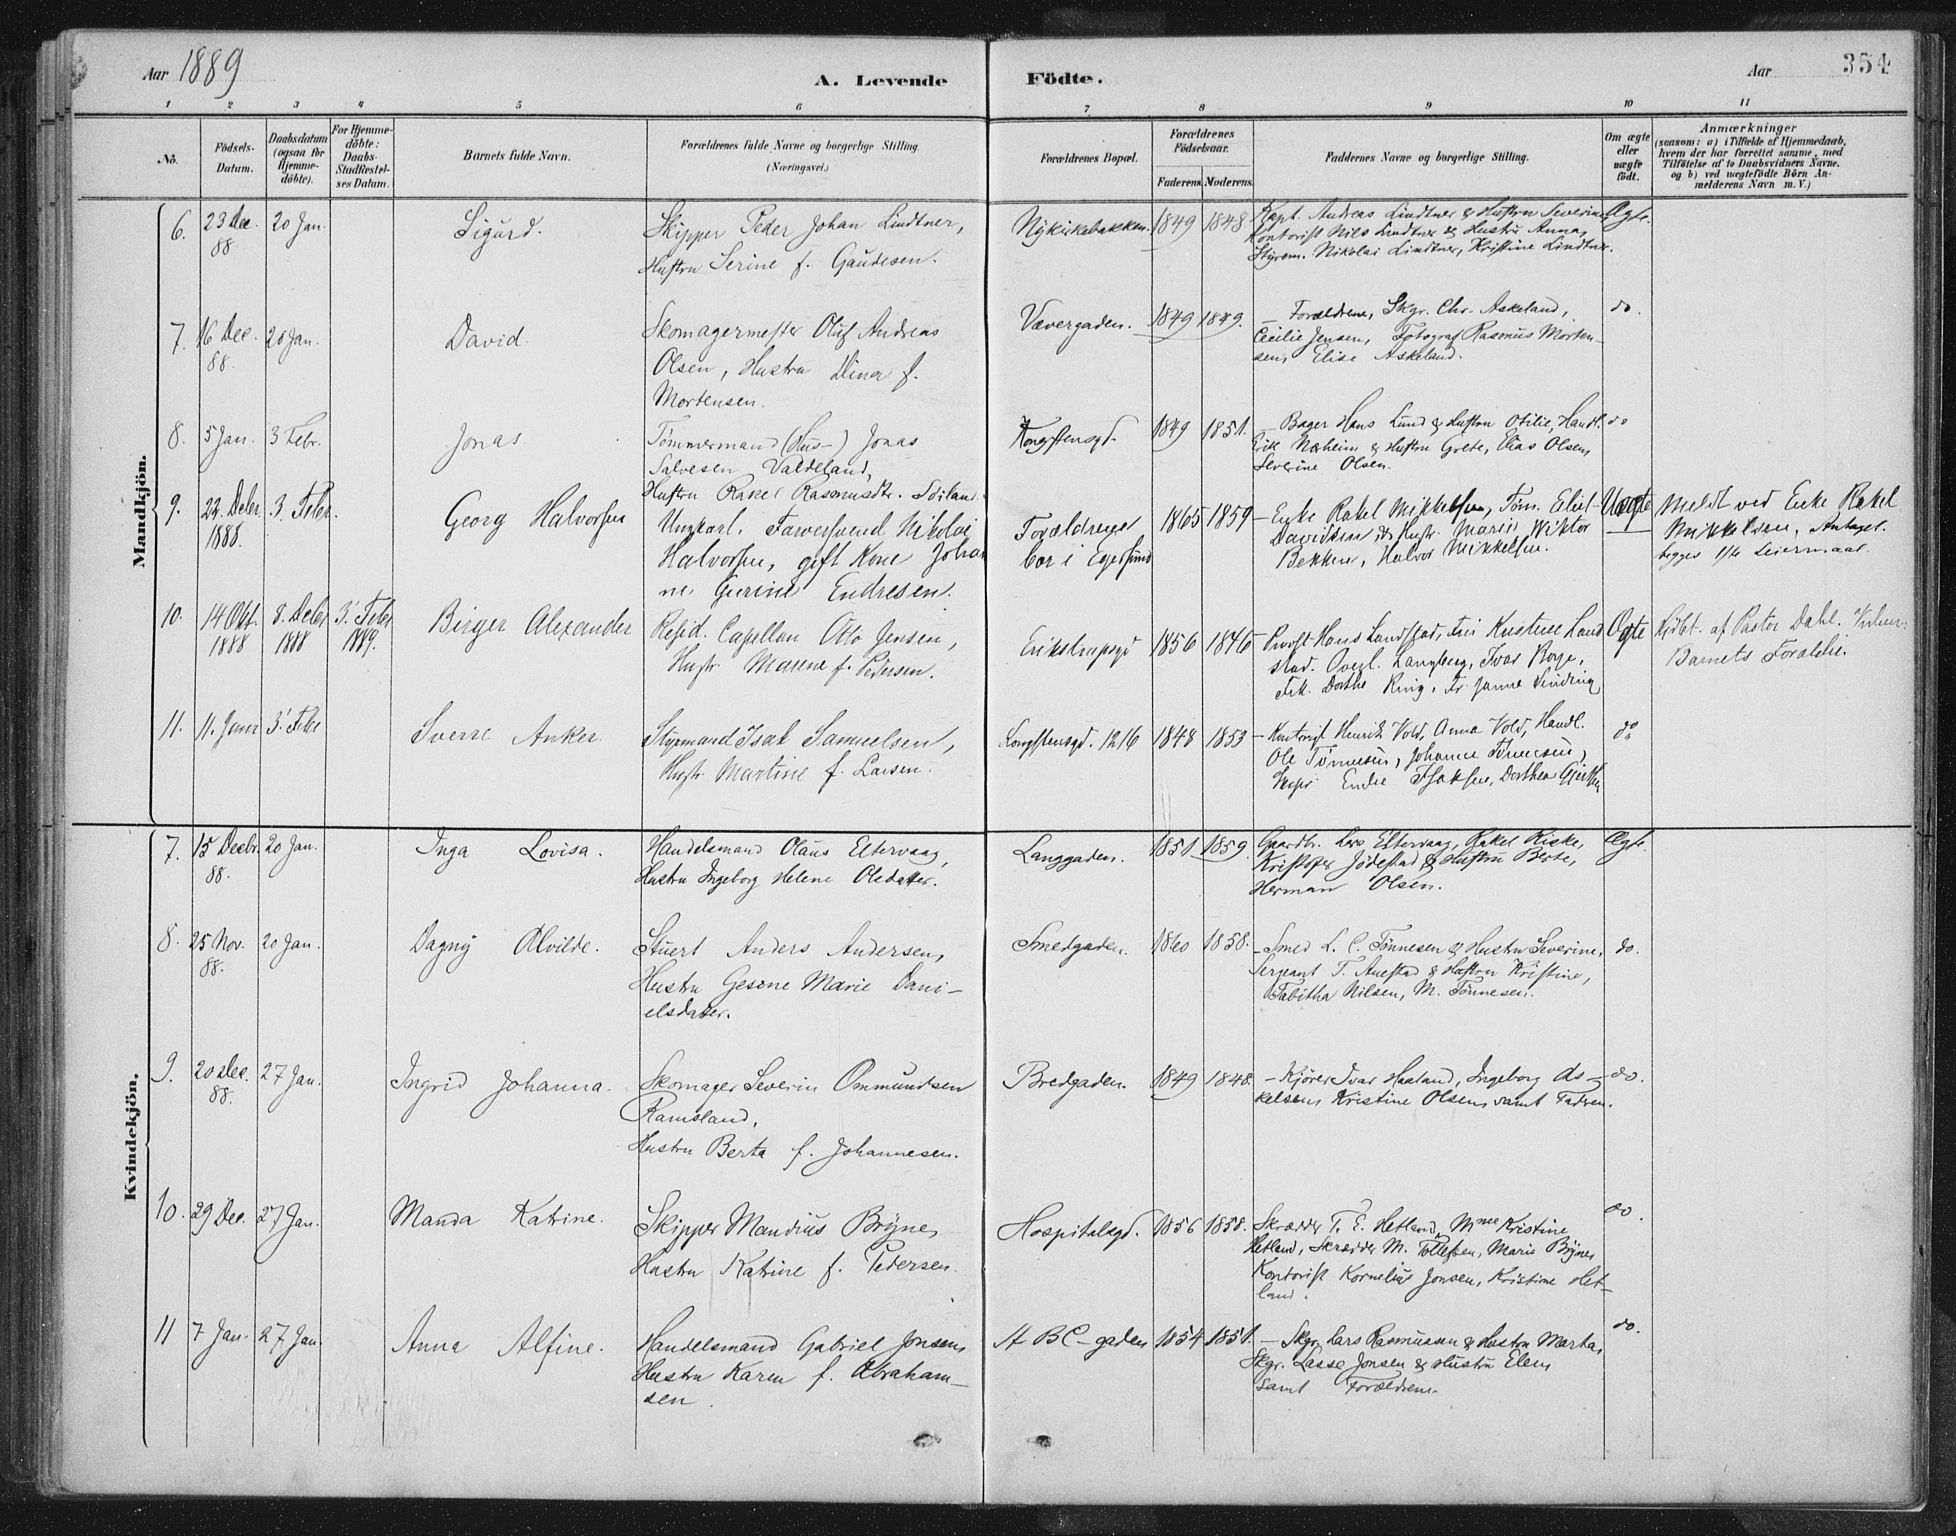 Aar 1889
A. Levende Födte.
Aar
354
1 2 3 4 5 6 7 8 9 10 11
No.
Födsels-Datum.
Daabsdatum (ogsaa for Hjemme-döbte).
For Hjemme-döbte: Daabs-Stadfestel-ses Datum.
Barnets fulde Navn.
Forældrenes fulde Navne og borgerlige Stilling. (Næringsvei.)
Forældrenes Bopæl.
Forældrenes Födselsaar.
Faderens Moderens
Faddernes Navne og borgerlige Stilling.
Om ægte eller uægte födt.
Anmærkninger
(saasom: a) i Tilfælde af Hjemmedaab, hvem der har forrettet samme, med Tilföielse af to Daabsvidners Navne, og b) ved uægtefödte Börn An-melderens Navn m. V.)
Mandkjön.
6. 23 Dec. 88 20 Jan. Sigurd. Skipper Peder Johan Lindtner, Nykirkebakken. 1849 1848 Kapt. Andreas Lindtner & Hustru Severine Ægte.
Hustru Serine f. Gaudesen. Kontorist Nils Lindtner & Hustru Anna,
Styrem. Nikolai Lindtner, Kristine Lindtner.
7. 16 Dec. 88. 20 Jan. David. Skomagermester Oluf Andreas Vævergaden. 1849 1849. – Forældrene, Skgr. Chr. Askeland, do.
Olsen, Hustru Dina f. Cecilie Jensen, Fotograf Rasmus Morten-
Mortensen. sen, Elise Askeland.
8. 5 Jan. 3 Febr. Jonas Tömmermand (Hus-) Jonas Kongstensgd. 1849 1851. – Bager Hans Lund & Hustru Otilie, Handl. do
Salvesen Valdeland, Erik Nærheim & Hustru Grete, Elias Olsen,
Hustru Rakel Rasmusdtr. Severine Olsen.
9. 22. Decbr. 1888. 3. Febr. Georg Halvorsen Ungkarl. Farversvend Nikolai Forældrenge 1865 1859 – Enke Rakel Mikkelsen, Töm. Uægte Meldt ved Enke Rakel
Halvorsen, gift Kone Johan bor i Egersund Davidsen & Hustr. Marie, Viktor Mikkelsen, Antagel.
ne Gurine Endresen. Bekken, Halvor Mikkelsen. begges 1ste Leiermaal.
10. 14 Okt. 1888 8. Decbr 1888 3' Febr 1889. Birger Alexander Resid. Capellan Otto Jensen, Erikstrupsgd 1856 1846 Provst Hans Landstad, Ægte Hjdbt. af Pastor Dahl.
Hustr. Marene f. Pedersen. stad. Langberg, Ivar Borge, Barnets Forældre.
Frk. Dorthe Ring, Fr. Janne Vinding
11. 11. Janr 3' Febr Sverre Anker. Styrmand Isak Samuelsen, Kongstensgd. 1216 1848 1853 – Kontorist Henrik Vold, Anna Vold, Handl. do
Hustr. Martine f. Larsen. Ole Tönnesen, Johanne Tönnesen,
Endre Isaksen, Dorthea
Kvindekjön.
7. 15 Decbr. 88. 20 Jan. Inga Lovisa. Handelsmand Olaus Eltervaag, Langgaden. 1851 1859. Gaardbr. Lars Eltervaag, Rakel Riske, Ægte.
Hustru Ingeborg Helene Olsdatter. Kristofer Jödestad & Hustru Berte,
Herman Olsen.
8. 25 Nov. 88. 20 Jan. Dagny Alvilde. Stuert Anders Andersen, Smedgaden. 1860 1858. – Smed L. C. Tönnesen & Hustru Severine, do.
Hustru Gesine Marie Dani- Sergeant T. Auestad & Hustru Kristine,
elsdatter. Tabitha Nilsen, M. Tönnesen.
9. 20 Dec. 88. 27 Jan. Ingrid Johanna. Skomager Severin Ommundsen Bredgaden. 1849 1848. – Kjörer Ivar Haaland, Ingeborg As- do.
Ramsland, kelsen, Kristine Olsen, samt Fadren.
Hustru Berta f. Johannesen.
10. 29 Dec. 27 Jan. Manda Katrine. Skipper Mandius Bryne, Hospitalsgd. 1856 1858. Skrædder T. E. Hetland, Mme Kristine do.
Hustru Katrine f. Pedersen. Hetland, Skrædder M. Tollefsen, Marie Bryne,
Kontorist Kornelius Jonsen, Kristine Het-
land.
11 7 Jan. 27 Jan. Anna Alfine. Handelsmand Gabriel Jonsen, A B C-gaden 1854 1851. – Skgr. Lars Rasmussen & Hustru Marta, do.
Hustru Karen f. Abraham- Skgr. Lasse Jonsen & Hustru Elen,
sen. samt Forældrene.